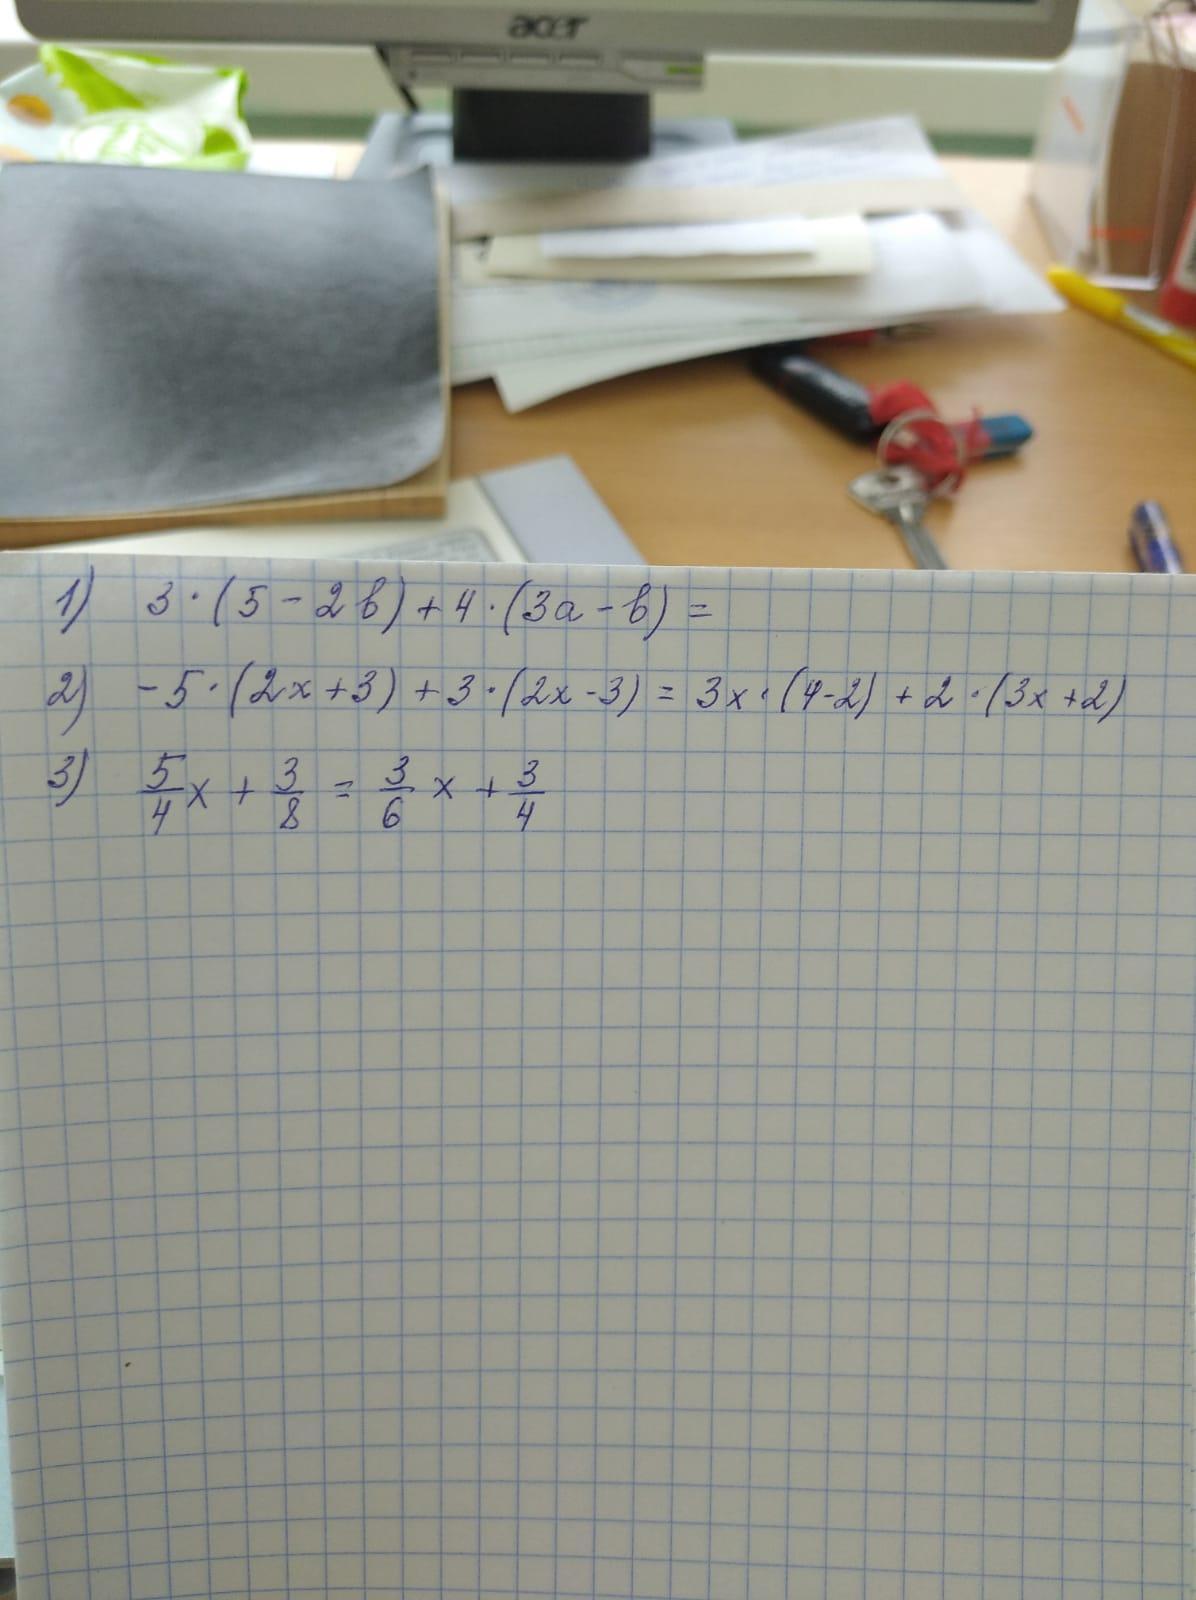 acer
1) 3·(5-2b)+4·(3a-b)=
2) -5·(2x+3)+3·(2x-3)=3x·(4-2)+2·(3x+2)
3) 5/4x+3/8=3/6x+3/4